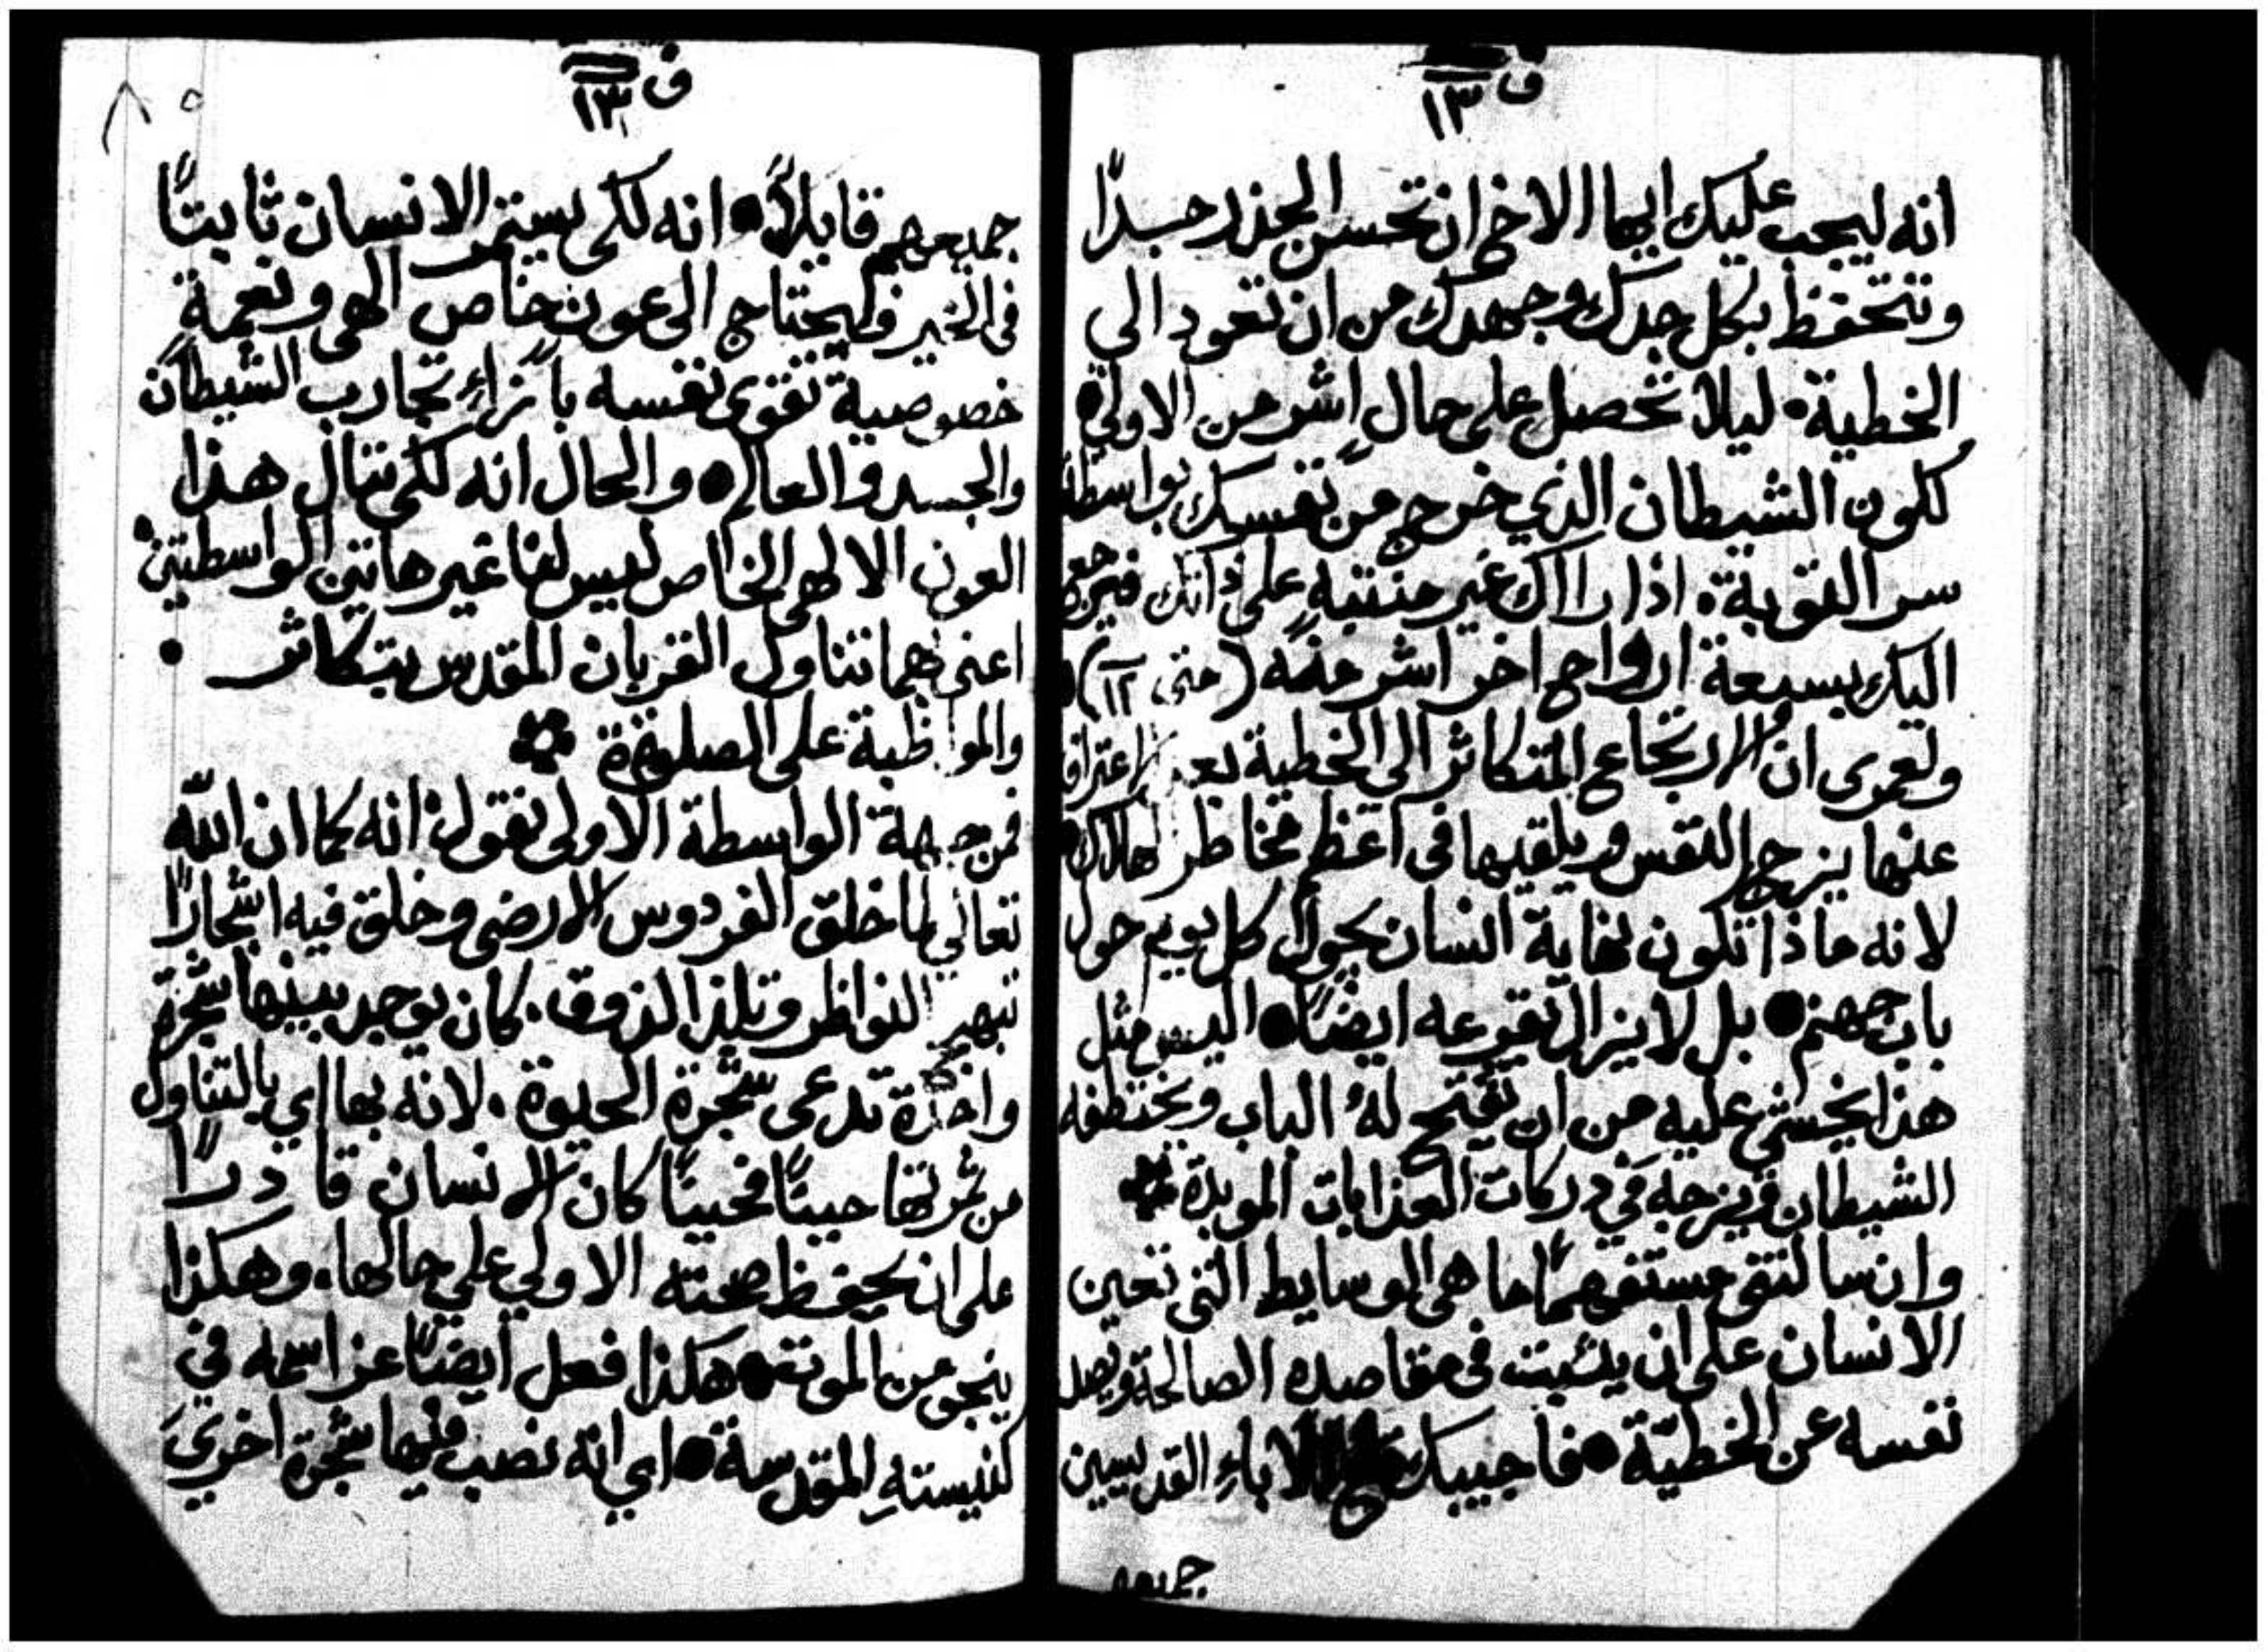 ف ١٣
انه ليجب عليك ايها الاخ ان تحسن الحذر جدًا
وتتحفظ بكل جدك وجهدك من ان تعود الي
الخطية • ليلا تحصل علي حالٍ اشر من الاولي •
لكون الشيطان الذي خرج من نفسك بواسطة
سر التوبة • اذا راآك غير منتبهٍ علي ذاتك فيرجع
اليك بسبعة ارواح اخر اشر منه ( متى ١٢ ) •
ولعمرى ان الارتجاع المتكاثر الى الخطية بعد الاعتراف
عنها يزج النفس ويلقيها في اعظم مخاطر الهلاك •
لانه ماذا تكون نهاية انسان يجول كل يوم حول
باب جهنم • بل لا يزال يقرعه ايضًا • اليس مثل
هذا يخشي عليه من ان يفتح لهُ الباب ويختطفه
الشيطان فيزجه في دركات العذابات الموبدة
وان سالتنى مستفهمًا ما هى الوسايط التي تعين
الانسان علي ان يثبت في مقاصده الصالحة ويصد
نفسه عن الخطيّة • فاجيبك الاباءِ القديسين
جميعهم
ف ١٣
جميعهم قايلاً • انه لكى يستمر الانسان ثابتًا
في الخير فيحتاج الى عون خاص الهى ونعمةٍ
خصوصية تقوى نفسه باَزاءِ تجارب الشيطان
والجسد والعالم • والحال انه لكى ننال هذا
العون الالهى الخاص ليس لنا غير هاتين الواسطتين
اعنى بهما تناول القربان المقدس بتكاثر •
والمواظبة على الصلوة
فمن جهة الواسطة الاولى نقول انه كما ان اللّه
تعالي لما خلق الفردوس الارضى وخلق فيه اشجارًا
تبهر النواظر وتلذ الذوق • كان يوجد بينها شجرة
واحدة تدعى شجرة الحيوة • لانه بها اي بالتناول
من ثمرتها حينًا فحينًا كان الانسان قادرًا
على ان يحفظ صحته الاولي علي حالها • وهكذا
ينجو من الموت • هكذا فعل ايضًا عز اسمه في
كنيستهِ المقدسة • اي انه نصب فيها شجرة اخري